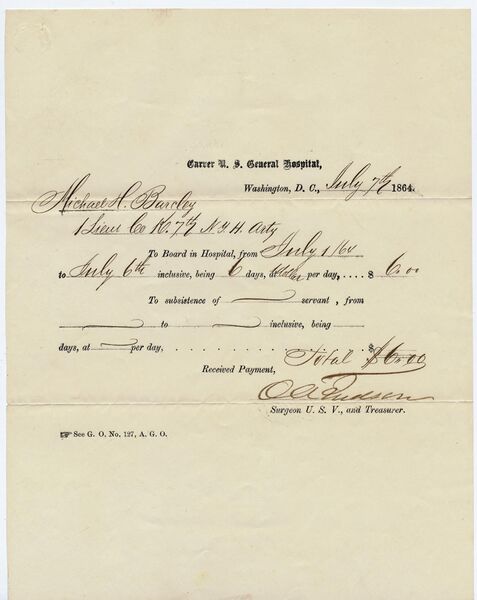 Carver U. S. General Hospital,
Washington, D. C., July 7th 1864.
Michael H. Barcley
1 Lieut Co K. 7th N.Y.H. Arty
To Board in Hospital, from July 1/64
to July 6th inclusive, being 6 days, at 1 dollar per day, .... $ 6.00
To subsistence of servant, from
to inclusive, being
days, at per day, . . . . . . . . . . $
Total $6.00
Received Payment,
O A Judson
Surgeon U. S. V., and Treasurer.
☞ See G. O. No. 127, A. G. O.